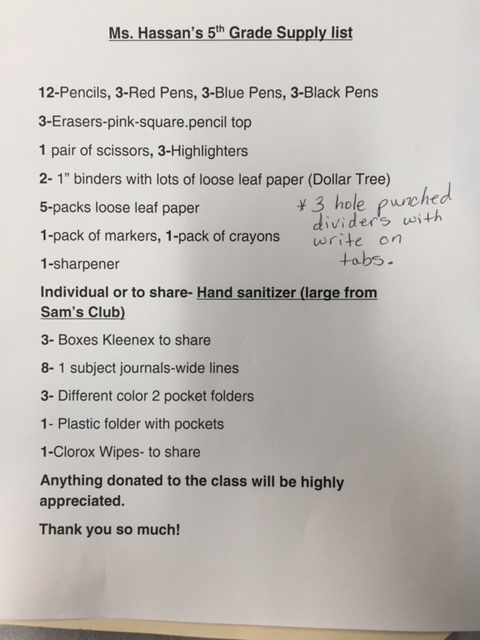 Ms. Hassan's 5th Grade Supply list
12-Pencils, 3-Red Pens, 3-Blue Pens, 3-Black Pens
3-Erasers-pink-square.pencil top
1 pair of scissors, 3-Highlighters
2- 1" binders with lots of loose leaf paper (Dollar Tree)
5-packs loose leaf paper
* 3 hole punched
dividers with
write on
tabs.
1-pack of markers, 1-pack of crayons
1-sharpener
Individual or to share- Hand sanitizer (large from
Sam's Club)
3- Boxes Kleenex to share
8- 1 subject journals-wide lines
3- Different color 2 pocket folders
1- Plastic folder with pockets
1-Clorox Wipes- to share
Anything donated to the class will be highly
appreciated.
Thank you so much!